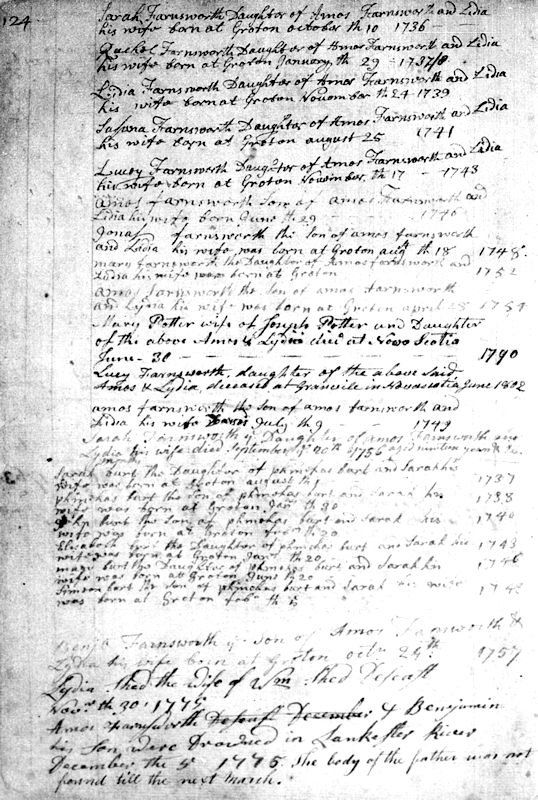 124
Sarah Farnsworth Daughter of Amos Farnsworth and Lidia
his wife born at Groton october th 10 1736
Rachel Farnsworth Daughter of Amos Farnsworth and Lidia
his wife born at Groton January th 29 - 1737/8
Lydia Farnsworth Daughter of Amos Farnsworth and Lidia
his wife born at Groton November th 24 1739
Susana Farnsworth Daughter of Amos Farnsworth and Lidia
his wife born at Groton august 25 1741
Lucey Farnsworth Daughter of Amos Farnsworth and Lidia
his wife born at Groton November th 17 - 1743
Amos farnsworth Son of amos Farnsworth and
Lidia his wife born June th 29 - 1746
Jonas farnsworth the son of amos farnsworth
and Lidia his wife was born at Groton augst th 18 1748
mary farnsworth the Daughter of Amos farnsworth and
Lidia his wife was born at Groton 1752
amos farnsworth the son of amos farnsworth
and Lydia his wife was born at Groton april 28 1754
Mary Potter wife of Joseph Potter and Daughter
of the above Amos & Lydia died at Nova Scotia
June - 30 - 1790
Lucy Farnsworth, daughter of the above said
Amos & Lydia, deceased at Granvile in Nova scotia June 1802
amos farnsworth the Son of amos farnsworth and
Lidia his wife July th 9 - 1749
Sarah Farnsworth ye Daughter of Amos Farnsworth and
Lydia his wife died September ye 20th 1756 aged nineteen years &
Sarah burt the Daughter of phinehas burt and Sarah his
wife was born at Groton august th 1737
phinehas burt the son of phinehas burt and Sarah his
wife was born at Groton Jan th 30 1738
burt the Son of phinehas burt and Sarah his 1740
wife was born at Groton th 20
Elisabeth burt the Daughter of phinehas burt and Sarah his 1743
wife was born at Groton th 20
burt the Daughter of phinehas burt and Sarah his 1746
wife was born at Groton June th 20
Simeon burt the Son of phinehas burt and Sarah his wife 1748
was born at Groton feb th
Benja Farnsworth ye son of Amos Farnsworth &
Lydia his wife born at Groton octr 24th 1757
Lydia Shed the Wife of Wm Shed Deseast
Novr th 30 1775
Amos Farnsworth Deseast December & Benjamin
his Son were Drowned in Lankester River
December the 5 1775 The body of the father was not
found till the next March.